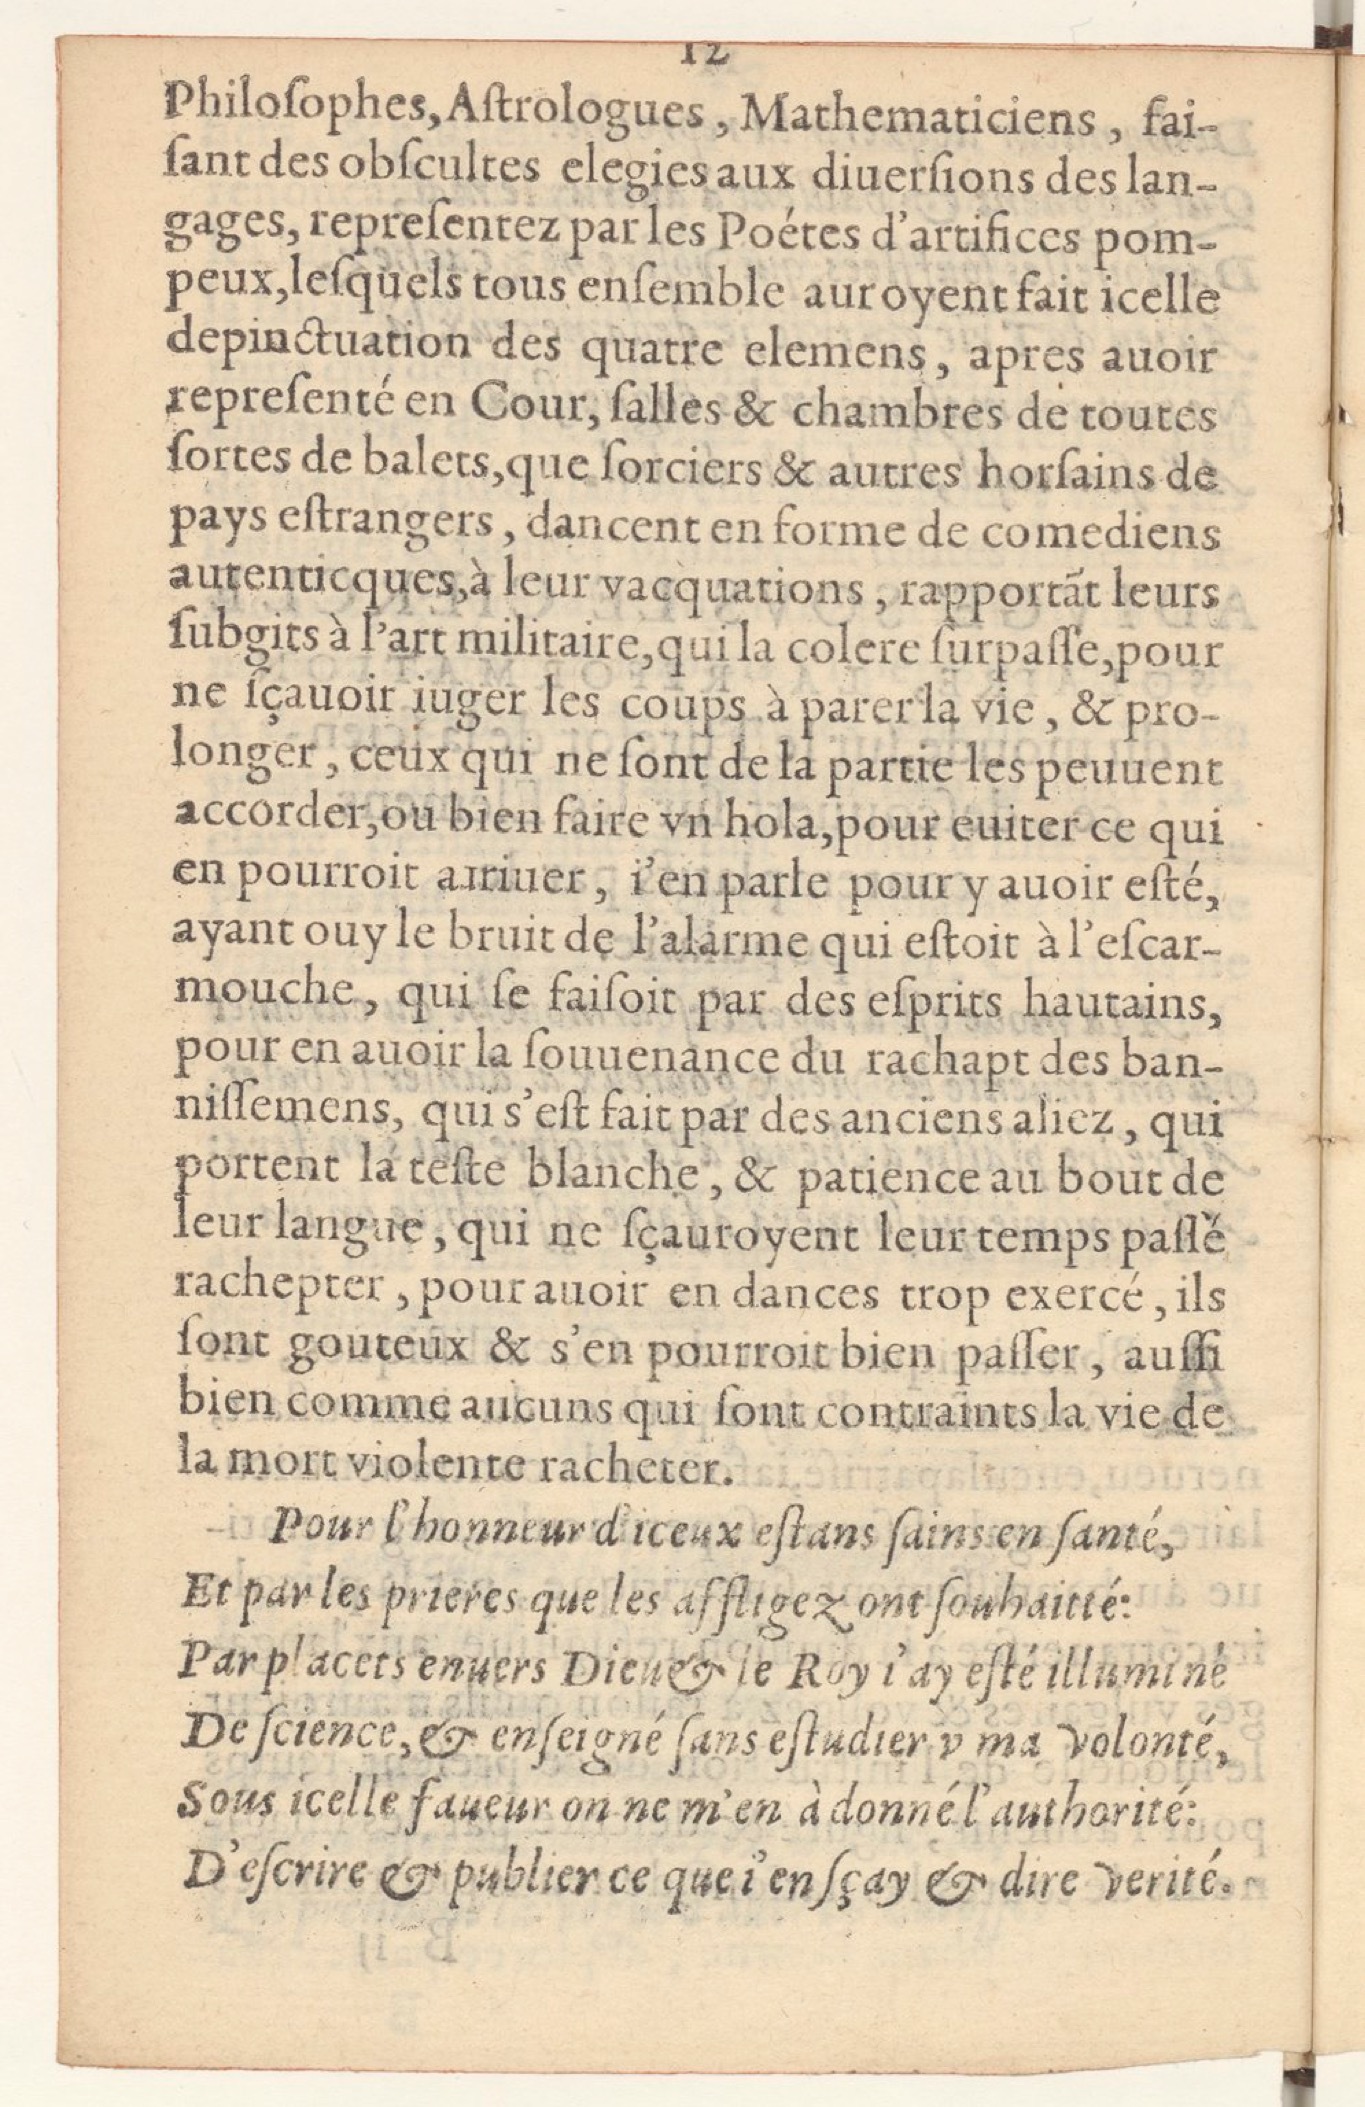 12
Philoſophes, Aſtrologues, Mathematiciens, fai-
ſant des obſcultes elegies aux diuerſions des lan-
gages, repreſentez par les Poétes d'artifices pom-
peux, leſquels tous enſemble auroyent fait icelle
depinctuation des quatre elemens, apres auoir
repreſenté en Cour, ſalles & chambres de toutes
ſortes de balets, que ſorciers & autres horſains de
pays eſtrangers, dancent en forme de comediens
autenticques, à leur vacquations, rapportãt leurs
ſubgits à l'art militaire, qui la colere ſurpaſſe, pour
ne ſçauoir iuger les coups à parer la vie, & pro-
longer, ceux qui ne ſont de la partie les peuuent
accorder, ou bien faire vn hola, pour euiter ce qui
en pourroit arriuer, i'en parle pour y auoir eſté,
ayant ouy le bruit de l'alarme qui eſtoit à l'eſcar-
mouche, qui ſe faiſoit par des eſprits hautains,
pour en auoir la ſouuenance du rachapt des ban-
niſſemens, qui s'eſt fait par des anciens aliez, qui
portent la teſte blanche, & patience au bout de
leur langue, qui ne ſçauroyent leur temps paſſé
rachepter, pour auoir en dances trop exercé, ils
ſont gouteux & s'en pourroit bien paſſer, auſſi
bien comme aucuns qui ſont contraints la vie de
la mort violente racheter.
Pour l'honneur d'iceux eſtans ſains en ſanté,
Et par les prieres que les affligez ont ſouhaitté:
Par placets enuers Dieu & le Roy i'ay eſté illuminé
De ſcience, & enſeigné ſans eſtudier v ma volonté,
Sous icelle faueur on ne m'en à donné l'authorité:
D'eſcrire & publier ce que i'en ſçay & dire verité.